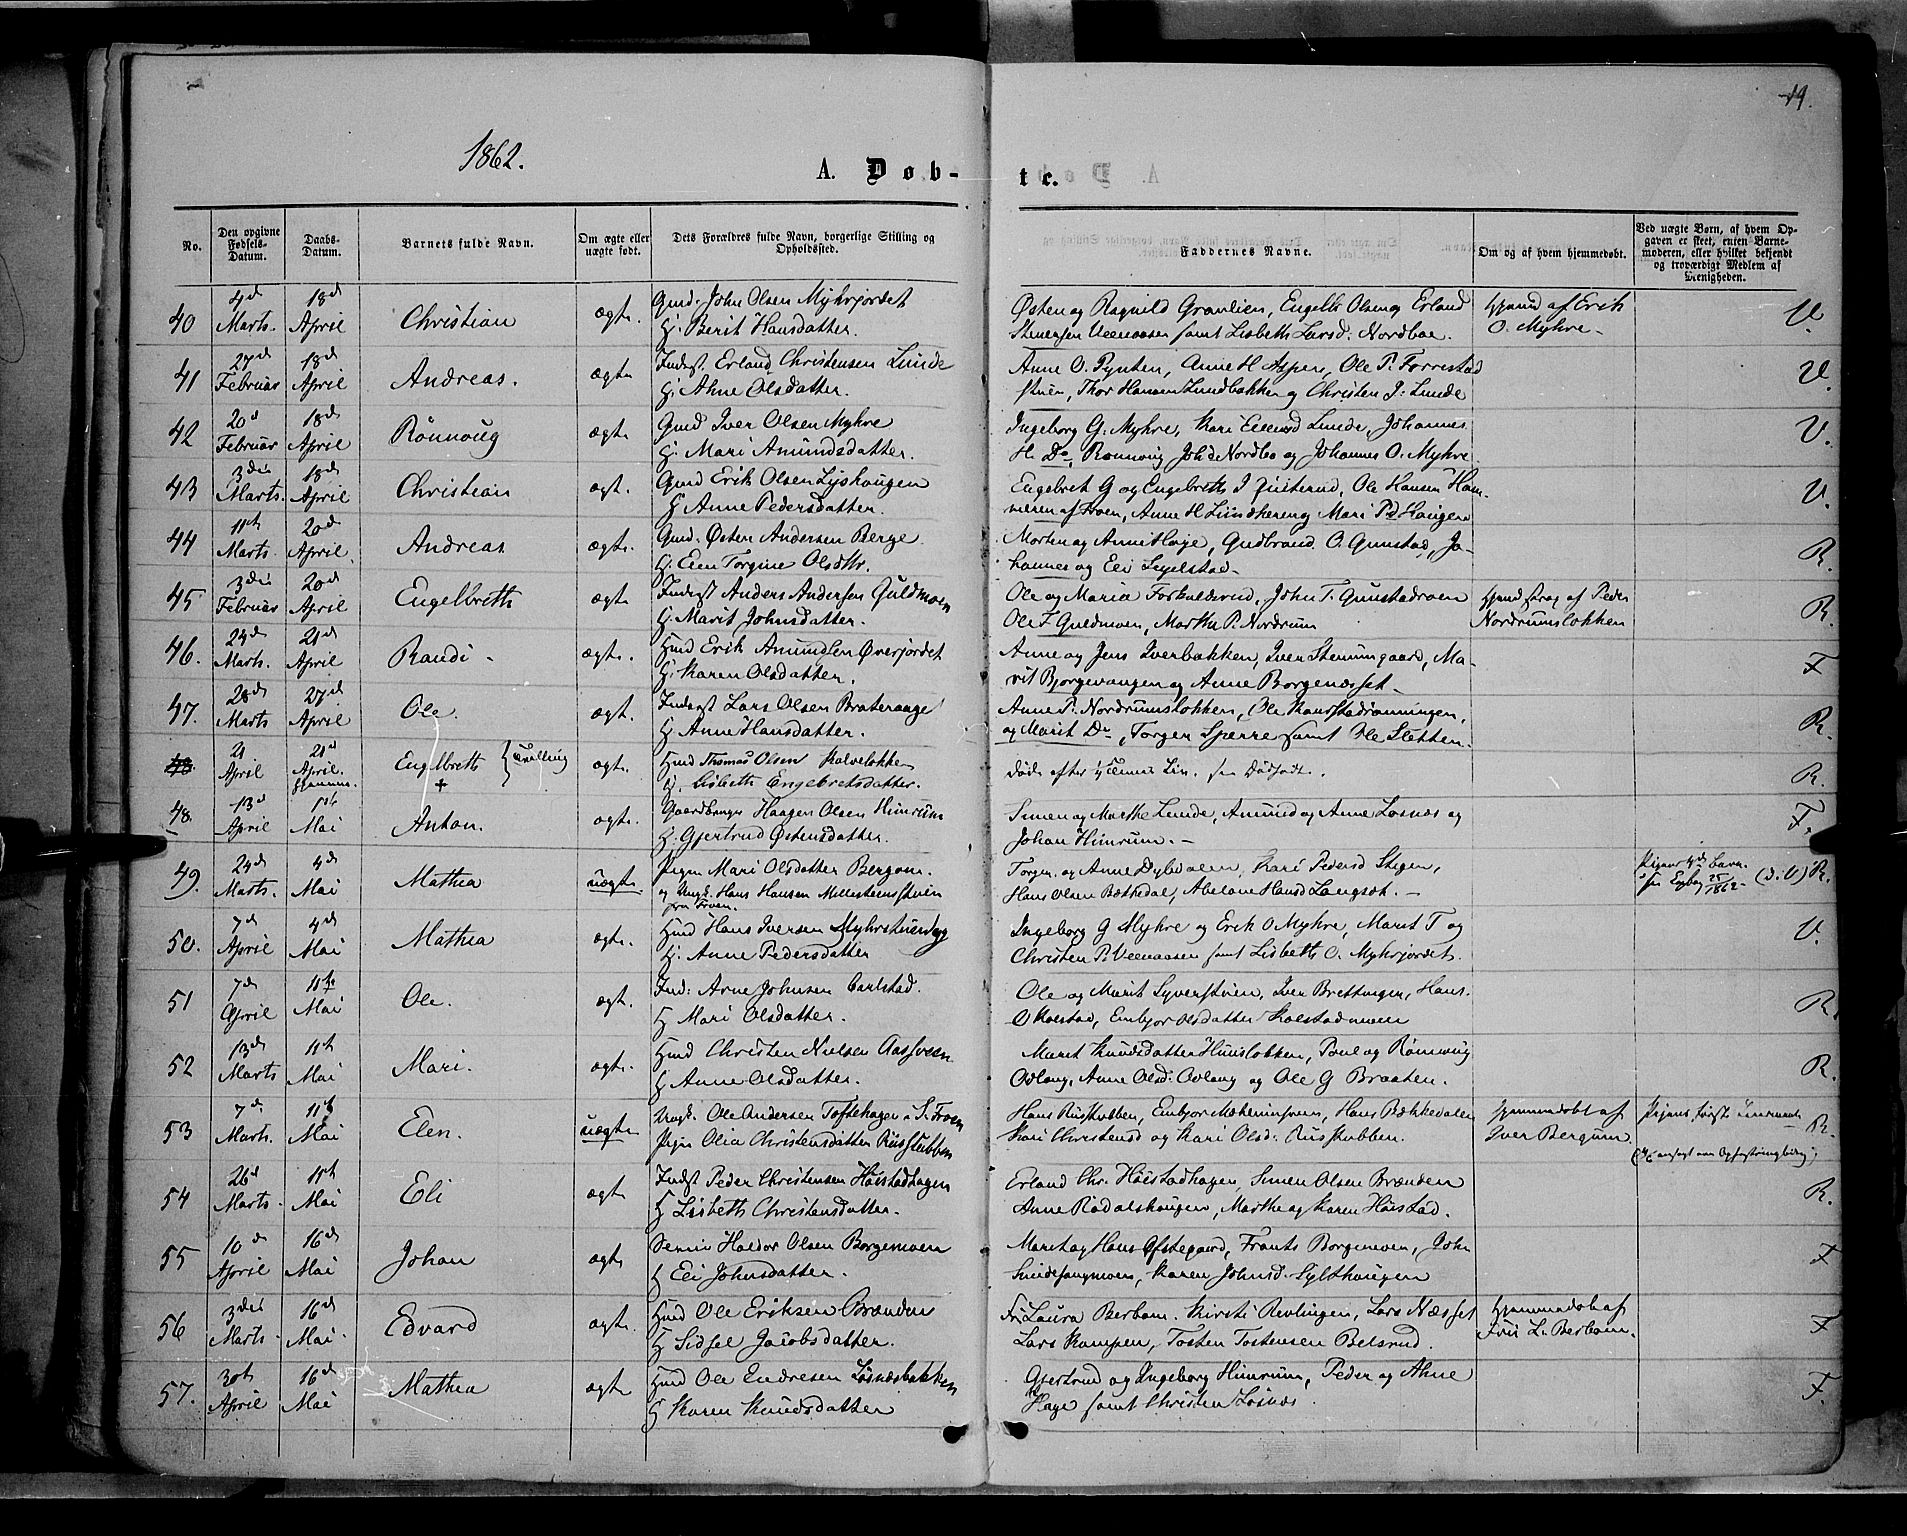 19.
1862.
A. Døb-
te.
No.
Den opgivne Fødsels-Datum.
Daabs-Datum.
Barnets fulde Navn.
Om ægte eller uægte født.
Dets Forældres fulde Navn, borgerlige Stilling og Opholdssted.
Faddernes Navne.
Om og af hvem hjemmedøbt.
Ved uægte Børn, af hvem Opgaven er skeet, enten Barnemoderen, eller hvilket bekjendt og troværdigt Medlem af Menigheden.
40 4de Marts. 18d April Christian ægte. Gmd. John Olsen Myhrjordet
H: Berit Hansdatter.
Østen og Ragnild Granlien, Engelth Olsen og Erland
Stenersen Veenaasen samt Lisbeth Larsd: Nordboe.
hjemd af Erik
O. Myhre.
V.
41 27d Februar 18d April Andreas. ægte Inderst. Erland Christensen Lunde
H: Ahne Olsdatter.
Anne O. Pynten, Anne H Aspen, Ole P. Forrestad
stuen, Thor Hansen Lundbakken og Christen J: Lunde
V.
42 20d Februar 18d April Rønnoug ægte Gmd Iver Olsen Myhre
H: Mari Amundsdatter.
Ingeborg G. Myhre, Kari Lunde, Johannes
H. Do, Rønnoug Johsd Nordbo og Johannes O. Myhre.
V.
43 3die Marts. 18d April Christian ægt. Gmd Erik Olsen Lyshaugen
H Anne Pedersdatter.
Engebret G og Engebreth J, Ole Hansen Ham-
meren af Froen, Anne H Lundheren og Mari Pd Haugen
V.
44 11te Marts 20d April Andreas ægte. Gmd. Østen Andersen Berge
H: Elen Torgine Olsdtr.
Morten og Anne Hage, Gudbrand O. Gunstad, Jo-
hannes og Eli Segelstad.
R.
45 3die Februar 20d April Engelbreth ægte Inderst Anders Andersen Guldmoen
H: Marit Johnsdatter.
Ole og Maria Forkalsrud, John T. Gunstadmoen
Ole J Guldmoen, Marthe P. Nordrum
hjemd strax af Peder
Nordrumsløkken
R.
46. 24d Marts. 21d April Randi - ægte. Hmd Erik Amundsen Øverjordet
H: Karen Olsdatter.
Anne og Jens Iverbakken, Iver Stenumgaard, Ma-
rit Bjorgevangen og Anne Borgenæsset.
F
47. 28d Marts 27d April Ole. ægt. Inderst Lars Olsen Braterange
H Anne Hansdatter.
Anne P. Nordrumsløkken, Ole Kanstadrønningen,
og Marit Do, Torger Sparre samt Ole Sletten.
R.
48. 21 April 21d April. hjemme. Engelbreth + Tvilling ægt. Hmd Thomas Olsen Kalveløkken
H. Lisbeth Engebretsdatter.
døde efter Times Liv. see Dødfødt.
R.
48. 13d April 1ste Mai Anton. ægte. Gaardbruger Haagen Olsen Himrum
H: Gjertrud Østensdatter.
Simen og Marthe Lunde, Amund og Anne Løsnæs og
Johan Himrum.
F.
49. 24d Marts. 4d Mai Mathea uægte. Pigen Mari Olsdatter Bergum.
og Ungk. Hans Hansen Millesteinsstuen
fra Froen.
Torger og Anne Dybdalen, Kari Pedersd Stigen,
Hans Olsen Bækkedal, Abelone Hansd Langset.
Pigens Barn
25/1862
(d.V) R.
50. 7d April 4d Mai Mathea ægte. Hmd Hans Iversen Myhrstuen
H: Anne Pedersdatter
Ingeborg G Myhre og Erik O Myhre, Marit T og
Christen P. Veenaasen samt Lisbeth O. Myhrjordet.
V.
51 7d April 11te Mai Ole. ægt. Ind: Arne Johnsen Carlstad.
H Mari Olsdatter.
Ole og Marit Syverstuen, Iver Brettingen, Hans
O Kolstad, Embjor Olsdatter Kolstadmoen
R.
52 13d Marts 11te Mai Mari. ægte. Hmd Christen Nielsen Aassveen
H Anne Olsdatter.
Marit Knudsdatter Huusløkken, Poul og Rønnoug
Odlong, Anne Olsd: Odlong og Ole G Braaten.
R.
53 7d Marts. 11te Mai Elen. uægte Ungk. Ole Andersen Toftehagen i S. Froen
Pigen Olia Christensdatter Ruststubben
Hans Ruststubben, Embjor, Hans Bækkedalen
Kari Christensd og Kari Olsd: Ruststubben.
hjemmedøbt af
Iver Bergum
Pigens første
R.
54 26d Marts. 11te Mai Eli ægte Inderst Peder Christensen Høistadhagen
H Lisbeth Christensdatter.
Erland Chr. Høistadhagen, Simen Olsen Brænden
Anne Rødalshaugen, Marthe og Karen Høistad.
R.
55 10d April 16d Mai Johan ægte Semin Haldor Olsen Borgemoen
H Eli Johnsdatter.
Marit og Hans Øfstegaard, Frants Borgemoen, John
, Karen Johnsd. Sylthaugen
F
56 3die Marts. 16d Mai. Edvard ægte. Hmd Ole Eriksen Brænden
H Sidsel Jacobsdatter.
Frk Laura Berbom. Kirsti Revlingen, Lars Næsset
Lars Kampen, Tosten Tostensen Belsrud.
hjemmedøbt af
L. Berbom.
F
57. 30te April 16d Mai Mathea ægte Hmd Ole Endresen Løsnæsbakken
H Karen Knudsdatter
Gjertrud og Ingeborg Himrum, Peder og Ahne
Hage samt Christen Løsnæs.
F.